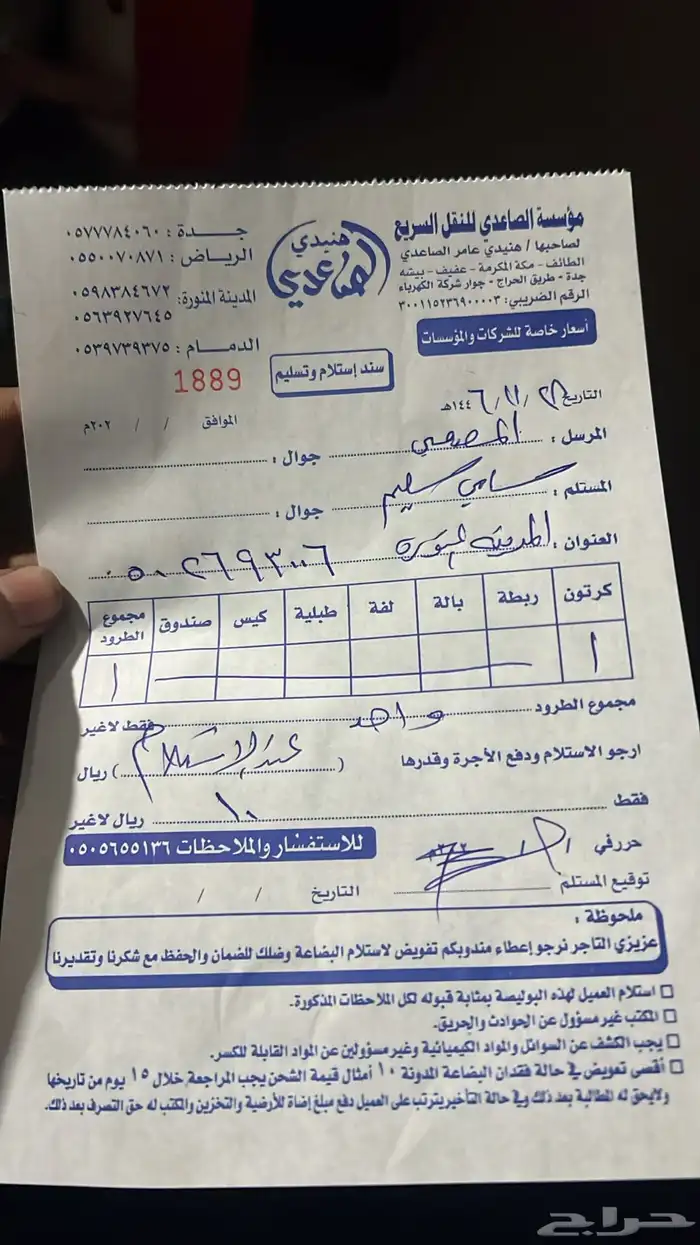 مؤسسة الصاعدي للنقل السريع
لصاحبها / هنيدي عامر الصاعدي
الطائف - مكة المكرمة - عفيف - بيشه
جدة - طريق الحراج - جوار شركة الكهرباء
الرقم الضريبي: ٣٠٠١١٥٢٣٦٩٠٠٠٠٣
أسعار خاصة للشركات والمؤسسات
هنيدي
الصاعدي
جدة : ٠٥٧٧٧٨٤٠٦٠
الرياض : ٠٥٥٠٠٧٠٨٧١
المدينة المنورة: ٠٥٩٨٣٨٤٦٧٢
٠٥٦٣٩٢٧٦٤٥
الدمام : ٠٥٣٩٧٣٩٣٧٥
1889
سند إستلام وتسليم
التاريخ ٢٨ / ١١ / ١٤٤٦هـ
الموافق / / ٢٠٢م
المرسل : جوال :
المستلم : سامي سليم جوال :
العنوان : المدينة المنورة ٠٥٠٢٦٩٣٠٠٦
كرتون ربطة بالة لفة طبلية كيس صندوق مجموع الطرود
١ ١
مجموع الطرود واحد فقط لاغير
ارجو الاستلام ودفع الأجرة وقدرها ( عند الاستلام ) ريال
فقط ١٠ ريال لاغير
حرر في
للاستفسار والملاحظات ٠٥٠٥٦٥٥١٣٦
توقيع المستلم التاريخ / /
ملحوظة :
عزيزي التاجر نرجو إعطاء مندوبكم تفويض لاستلام البضاعة وضلك للضمان والحفظ مع شكرنا وتقديرنا
□ استلام العميل لهذه البوليصة بمثابة قبوله لكل الملاحظات المذكورة.
□ المكتب غير مسؤول عن الحوادث والحريق.
□ يجب الكشف عن السوائل والمواد الكيميائية وغير مسؤولين عن المواد القابلة للكسر.
□ أقصى تعويض في حالة فقدان البضاعة المدونة ١٠ أمثال قيمة الشحن يجب المراجعة خلال ١٥ يوم من تاريخها
ولايحق له المطالبة بعد ذلك وفي حالة التأخير يترتب على العميل دفع مبلغ إضاة للأرضية والتخزين والمكتب له حق التصرف بعد ذلك.
حراج